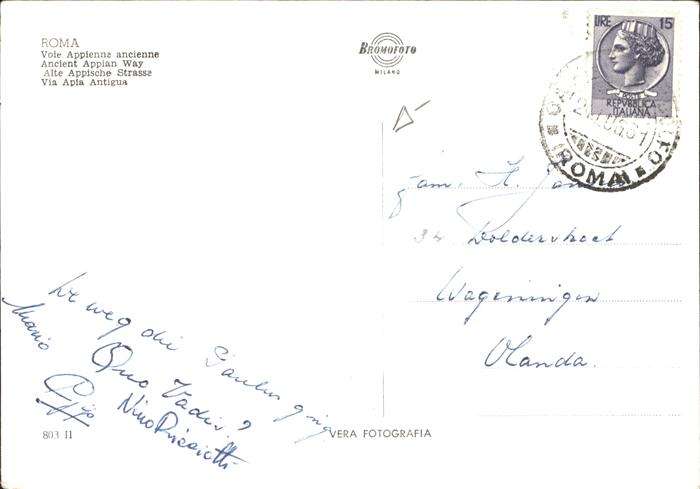 ROMA
Voie Appienne ancienne
Ancient Appian Way
Alte Appische Strasse
Via Apia Antigua
BROMOFOTO
MILANO
LIRE 15
POSTE
REPVBBLICA
ITALIANA
ROMA
Fam. H. Jan
34 Dolderstraat
Wageningen
Olanda.
De weg die Paulus ging
Quo Vadis?
Mario
Gijs
Nino
803 II
VERA FOTOGRAFIA